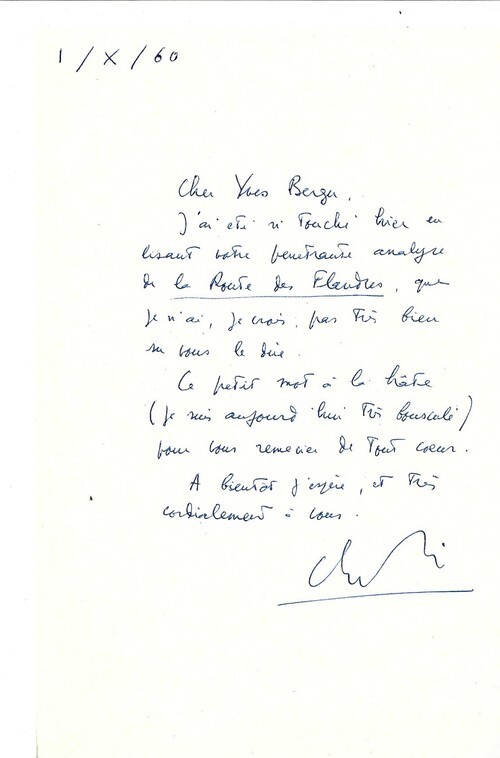 1/X/60
Cher Yves Berger,
J'ai été si touché hier en
lisant votre pénétrante analyse
de la Route des Flandres, que
je n'ai, je crois, pas très bien
su vous le dire.
Ce petit mot à la hâte
(je suis aujourd'hui très bousculé)
pour vous remercier de tout coeur.
A bientôt j'espère, et très
cordialement à vous.